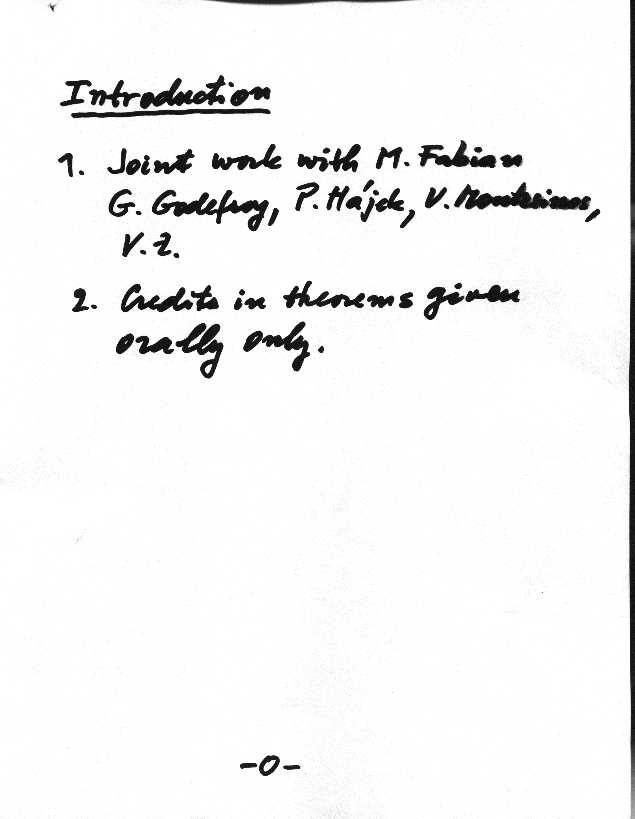 Introduction
1. Joint work with M. Fabian
G. Godefroy, P. Hájek, V. Montesinos,
V. Z.
2. Credits in theorems given
orally only.
-0-